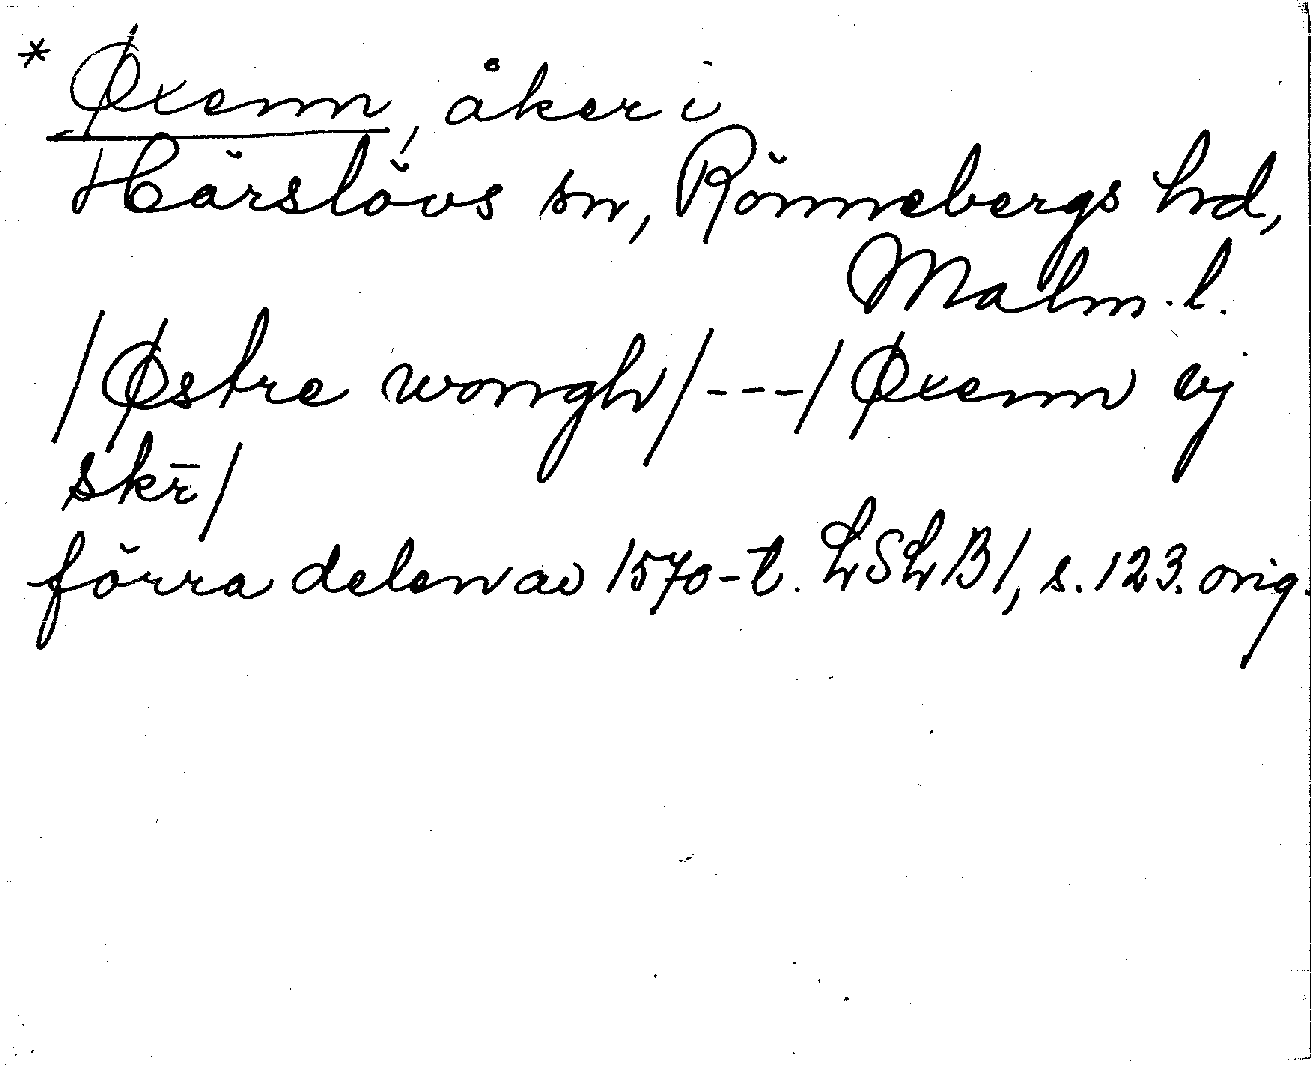 * Øxenn, åker i
Härslövs sn, Rönnebergs hd,
Malm. l.
/Østre wongh/---/Øxenn ej
skr̄/
förra delen av 1570-t. LSLB1, s. 123. orig.